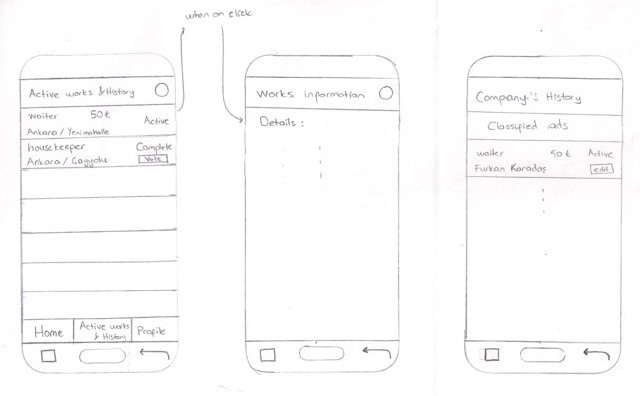 when on click
Active works & History
waiter 50₺ Active
Ankara / Yenimahalle
housekeeper Complete
Ankara / Çayyolu Vote
Home
Active works
& History
Profile
Works information
Details :
Company's History
Classified ads
waiter 50₺ Active
Furkan Karadaş edit